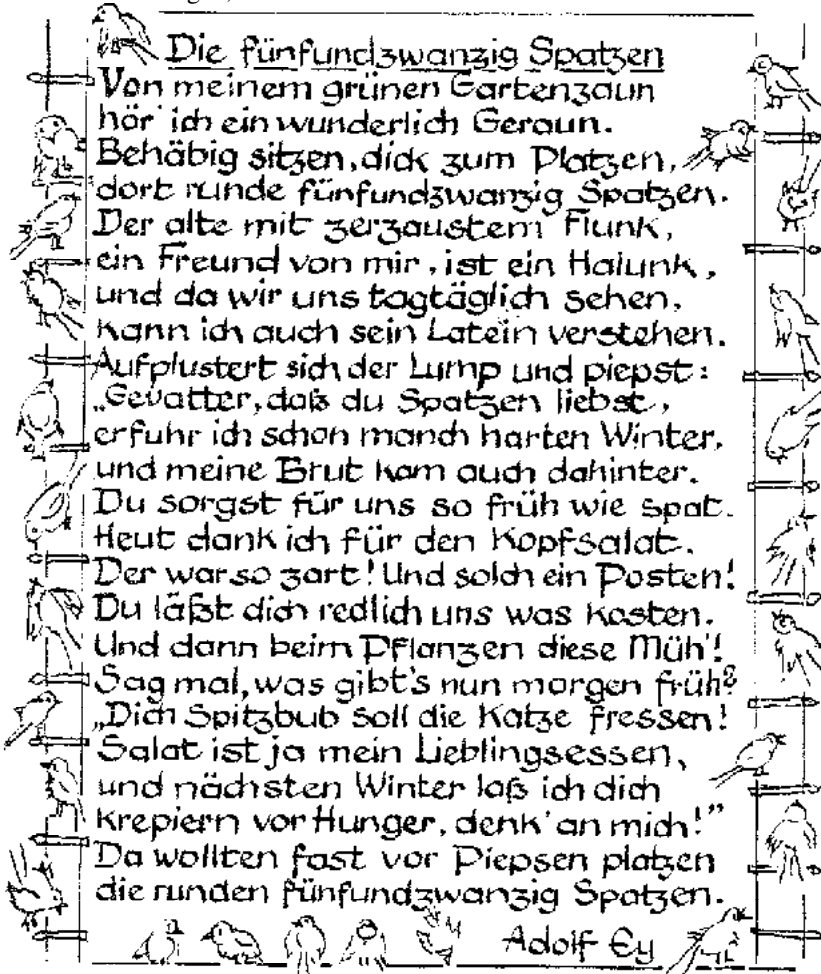 Die fünfundzwanzig Spatzen
Von meinem grünen Gartenzaun
hör' ich ein wunderlich Geraun.
Behäbig sitzen, dick zum Platzen,
dort runde fünfundzwanzig Spatzen.
Der alte mit zerzaustem Flunk,
ein Freund von mir, ist ein Halunk,
und da wir uns tagtäglich sehen,
kann ich auch sein Latein verstehen.
Aufplustert sich der Lump und piepst:
„Gevatter, daß du Spatzen liebst,
erfuhr ich schon manch harten Winter,
und meine Brut kam auch dahinter.
Du sorgst für uns so früh wie spat.
Heut dank ich für den Kopfsalat.
Der war so zart! Und solch ein Posten!
Du läßt dich redlich uns was kosten.
Und dann beim Pflanzen diese Müh'!
Sag mal, was gibt's nun morgen früh?
„Dich Spitzbub soll die Katze fressen!
Salat ist ja mein Lieblingsessen,
und nächsten Winter laß ich dich
krepiern vor Hunger, denk' an mich!"
Da wollten fast vor Piepsen platzen
die runden fünfundzwanzig Spatzen.
Adolf Ey